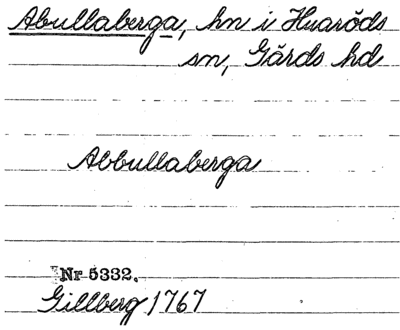 Abullaberga, hn i Huaröds
sn, Gärds hd
Abbullaberga
Nr 5332.
Gillberg 1767